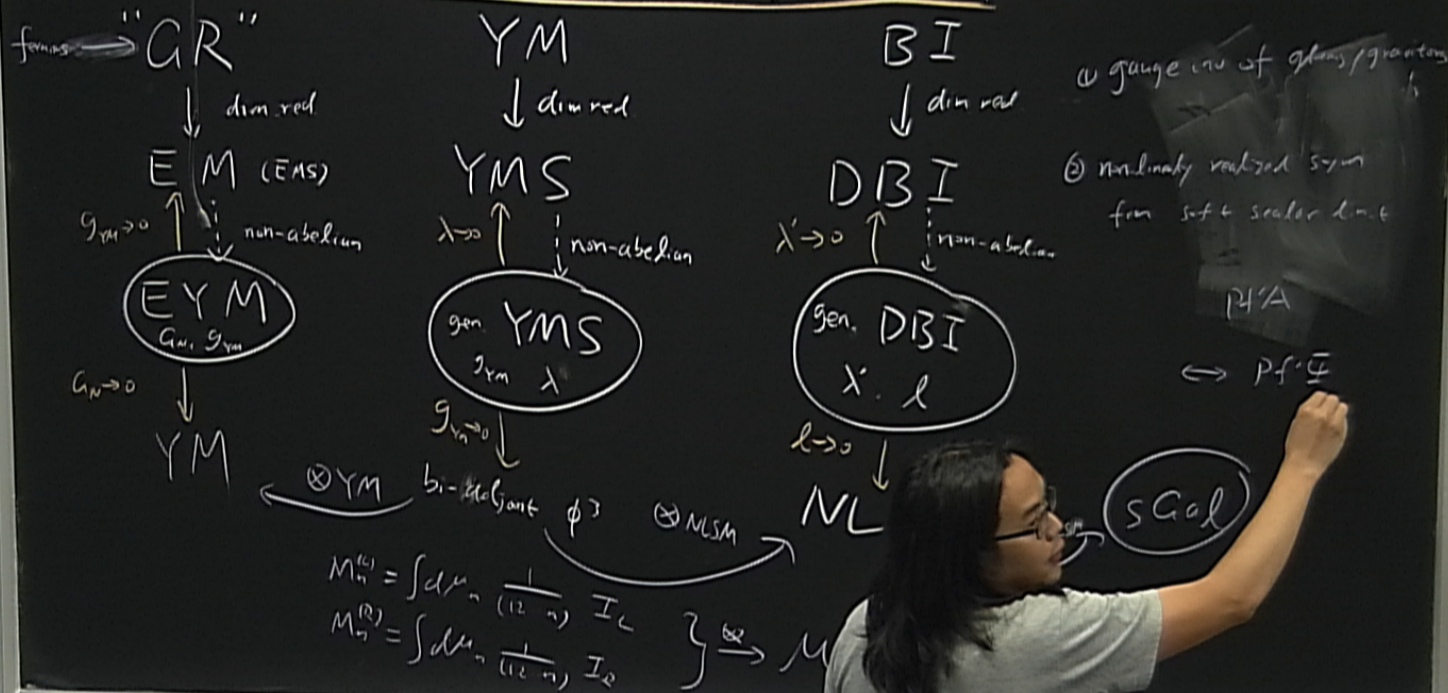 "GR"
dim red
EM (EMS)
g_YM→0
non-abelian
EYM
G_N, g_YM
G_N→0
YM
YM
dim red
YMS
λ→0
non-abelian
gen. YMS
g_YM λ
g_YM→0
bi-adjoint ϕ³
⊗YM
⊗NLSM
BI
dim red
DBI
λ'→0
non-abelian
gen. DBI
λ'. l
l→0
NL
sGal
① gauge inv of gluons/gravitons
② nonlinearly realized sym
from soft scalar limit
Pf'A
↔ Pf'Ψ
M_n^(L) = ∫dμ_n 1/(12 n) I_L
M_n^(R) = ∫dμ_n 1/(12 n) I_R
} ⊗→ M